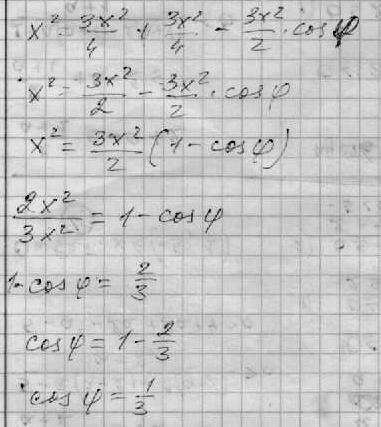 x² = 3x²/4 + 3x²/4 - 3x²/2 · cos φ
x² = 3x²/2 - 3x²/2 · cos φ
x² = 3x²/2 (1 - cos φ)
2x²/3x² = 1 - cos φ
1 - cos φ = 2/3
cos φ = 1 - 2/3
cos φ = 1/3